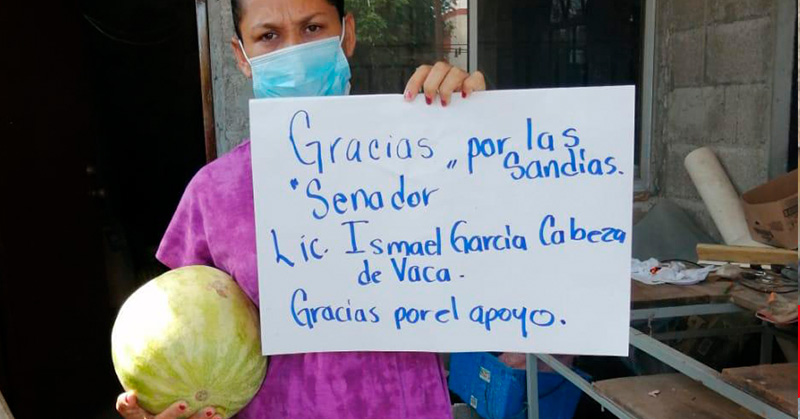 Gracias „ por las
Sandías.
"Senador
Lic. Ismael García Cabeza
de Vaca.
Gracias por el apoyo.